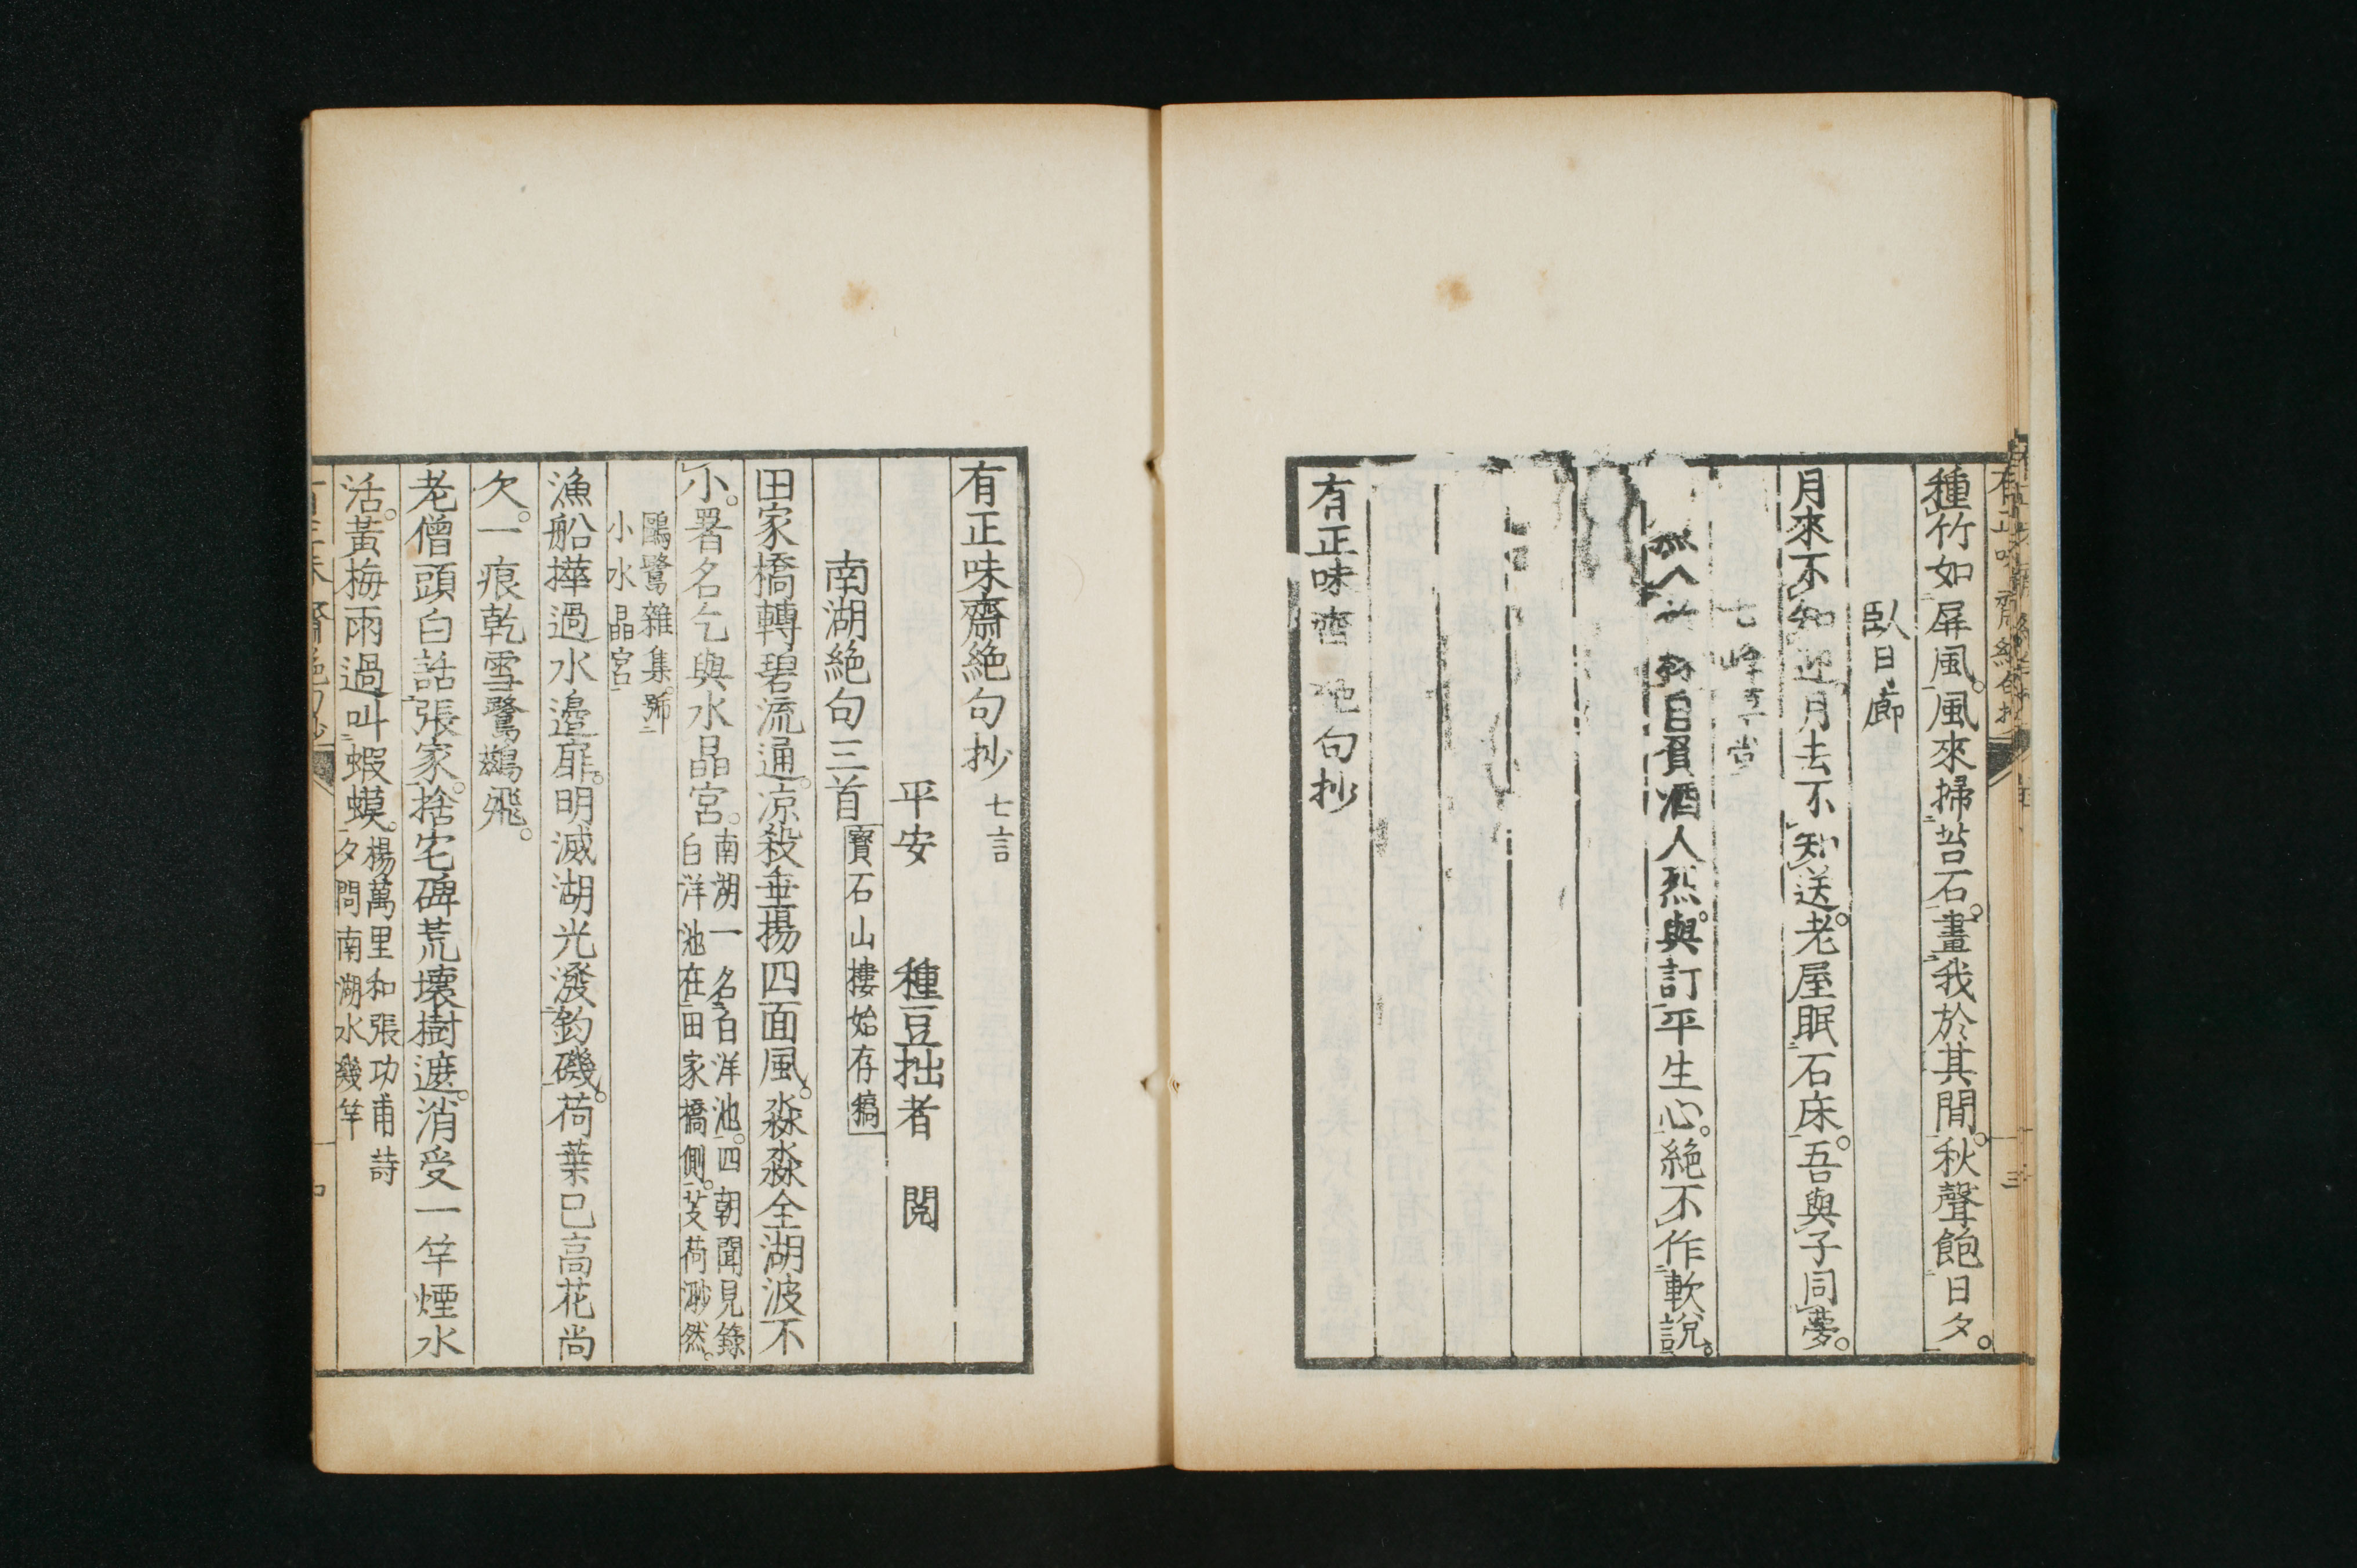 種竹如屏風。風來掃苔石。畫我於其間。秋聲飽日夕。
臥日廊
月來不知迎。月去不知送。老屋眠石床。吾與子同夢。
七峰草堂
自買酒人烈。與訂平生心。絕不作軟說。
有正味齋絕句抄
有正味齋絕句抄 七言
平安 種豆拙者 閱
南湖絕句三首 寶石山樓始存稿
田家橋轉碧流通。凉殺垂楊四面風。淼淼全湖波不
小。署名乞與水晶宮。南湖一名白洋池。四朝聞見錄
白洋池在田家橋側。芰荷渺然。
鷗鷺雜集。號
小水晶宮
漁船撶過水邊扉。明滅湖光潑釣磯。荷葉已高花尚
欠。一痕乾雪鷺鷥飛。
老僧頭白話張家。捨宅碑荒壞樹遮。消受一竿煙水
活。黃梅雨過叫蝦蟆。楊萬里和張功甫詩
夕問南湖水幾竿